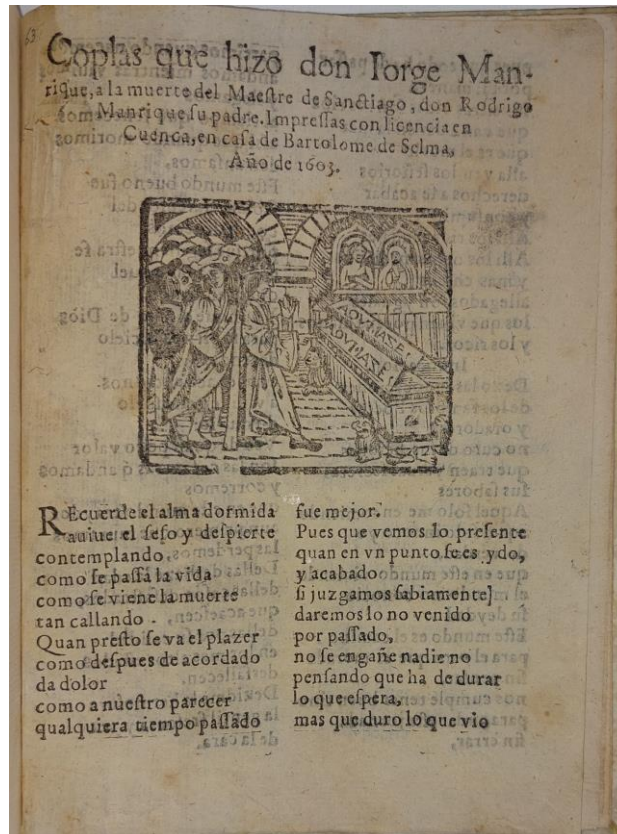 63
Coplas que hizo don Iorge Man-
rique, a la muerte del Maestre de Sanctiago, don Rodrigo
Manrique su padre. Impressas con licencia en
Cuenca, en casa de Bartolome de Selma,
Año de 1603.
REcuerde el alma dormida
auiue el seso y despierte
contemplando,
como se passa la vida
como se viene la muerte
tan callando.
Quan presto se va el plazer
como despues de acordado
da dolor
como a nuestro parecer
qualquiera tiempo passado
fue mejor.
Pues que vemos lo presente
quan en vn punto se es ydo,
y acabado
si juzgamos sabiamente]
daremos lo no venido
por passado,
no se engañe nadie no
pensando que ha de durar
lo que espera,
mas que duro lo que vio